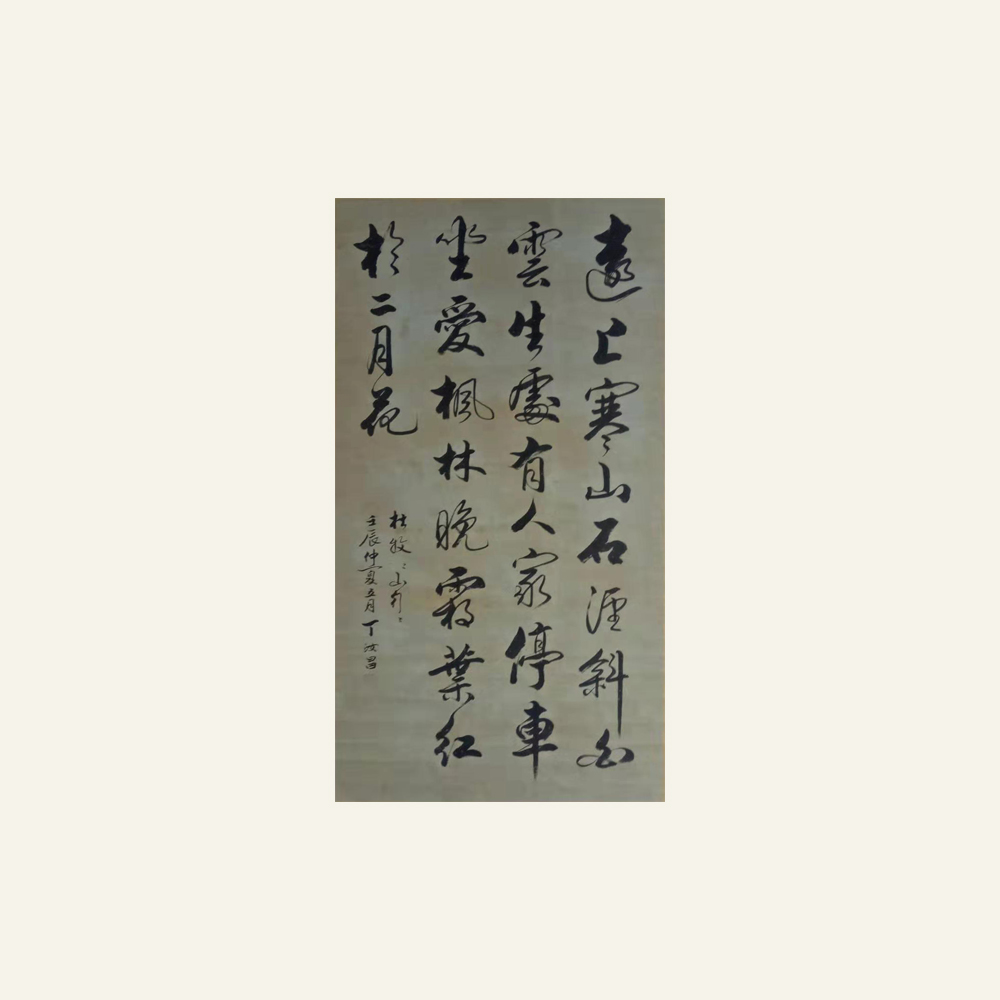 遠上寒山石徑斜白
雲生處有人家停車
坐愛楓林晚霜葉紅
於二月花
杜牧山行
壬辰仲夏五月丁汝昌